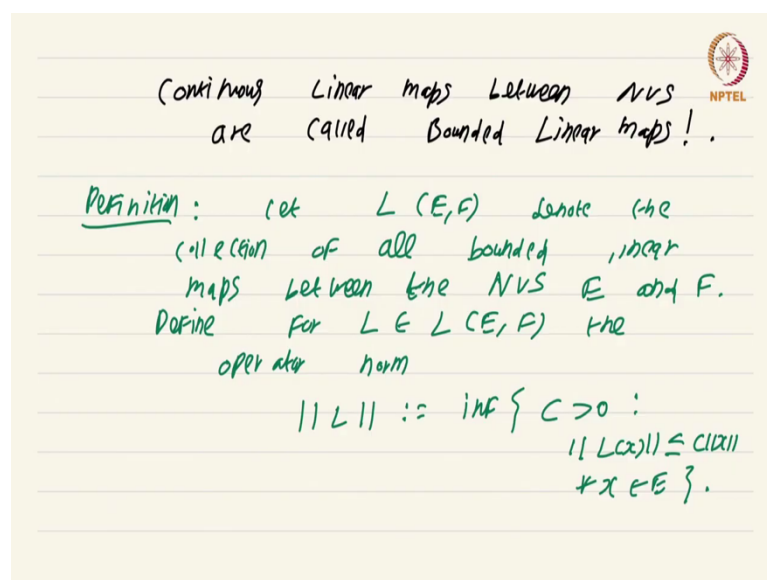 NPTEL
Continuous Linear maps between NVS
are called Bounded Linear maps!.
Definition: Let L (E,F) denote the
collection of all bounded linear
maps between the NVS E and F.
Define for L ∈ L (E, F) the
operator norm
||L|| := inf { C >0 :
|| L(x)|| ≤ C||x||
∀ x ∈ E }.